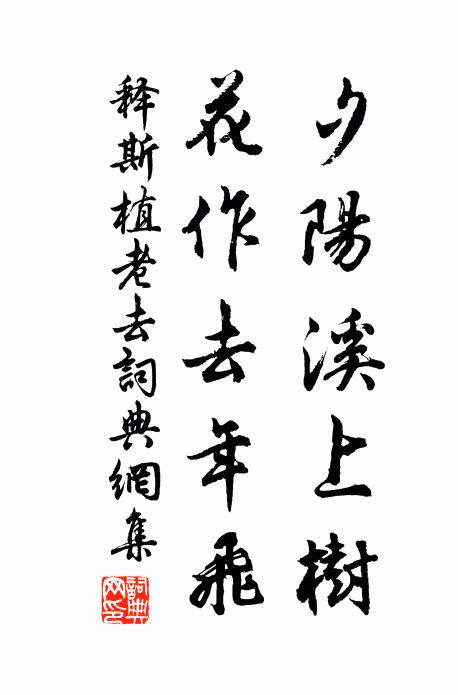 夕陽溪上樹
花作去年飛
释斯植老去詞典網集
詞典網印